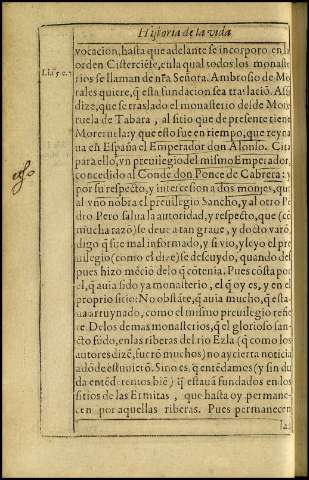 Historia de la vida
vocacion, hasta que adelante se incorporo, en la
orden Cisterciēse, en la qual todos los monaste
rios se llaman de nr̃a Señora. Ambrosio de Mo
rales quiere, q̃ esta fundacion sea traslaciō. Assi
dize, que se traslado el monasterio desde Mo
ruela de Tabara, al sitio que de presente tiene
Moreruela: y que esto fue en tiempo, que reyna
ua en España el Emperador don Alonso. Cita
para ello, vn preuilegio del mismo Emperador,
concedido al Conde don Ponce de Cabrera: y
por su respecto, y intercession a dos monjes, que
al vno nōbra el preuilegio Sancho, y al otro Pe
dro. Pero salua la autoridad, y respecto, que (cō
mucha razō) se deue a tan graue, y docto varō,
digo q̃ fue mal informado, y si vio, y leyo el pre
uilegio (como el dize) se descuydo, quando des
pues hizo mēciō de lo q̃ cōtenia. Pues cōsta por
el, q̃ auia sido ya monasterio, el q̃ oy es, y en el
proprio sitio: No obstāte, q̃ auia mucho, q̃ esta-
ua arruynado, como el mismo preuilegio refie
re. De los demas monasterios, q̃ el glorioso san-
cto fūdo, en las riberas del rio Ezla (q̃ como los
autores dizē, fuerō muchos) no ay cierta noticia
adōde estuuierō. Sino es q̃ entēdamos (y sin du
da entēderemos biē) q̃ estauā fundados en los
sitios de las Ermitas, que hasta oy permane-
cen por aquellas riberas. Pues permanecen
la
Li. 15. c. 1.